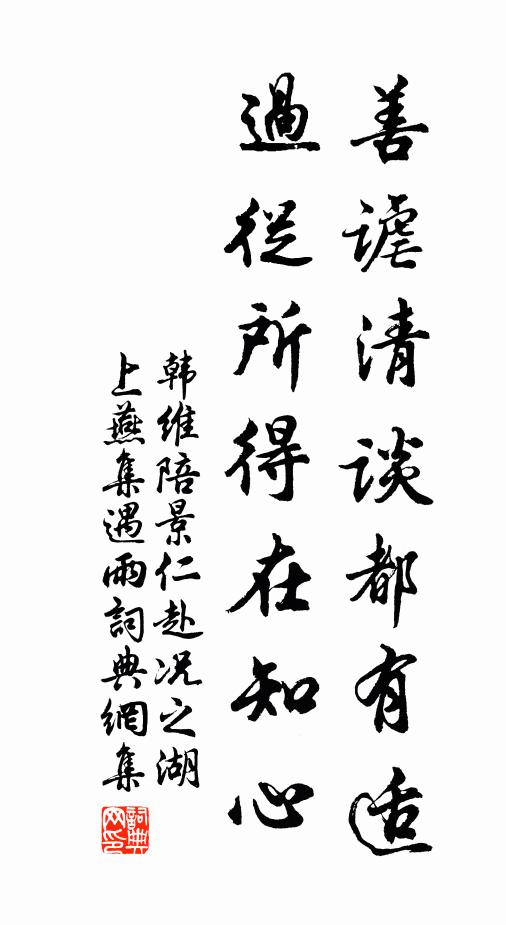 善谑清谈都有适
過從所得在知心
韩维陪景仁赴况之湖
上燕集遇雨詞典網集
詞典网印